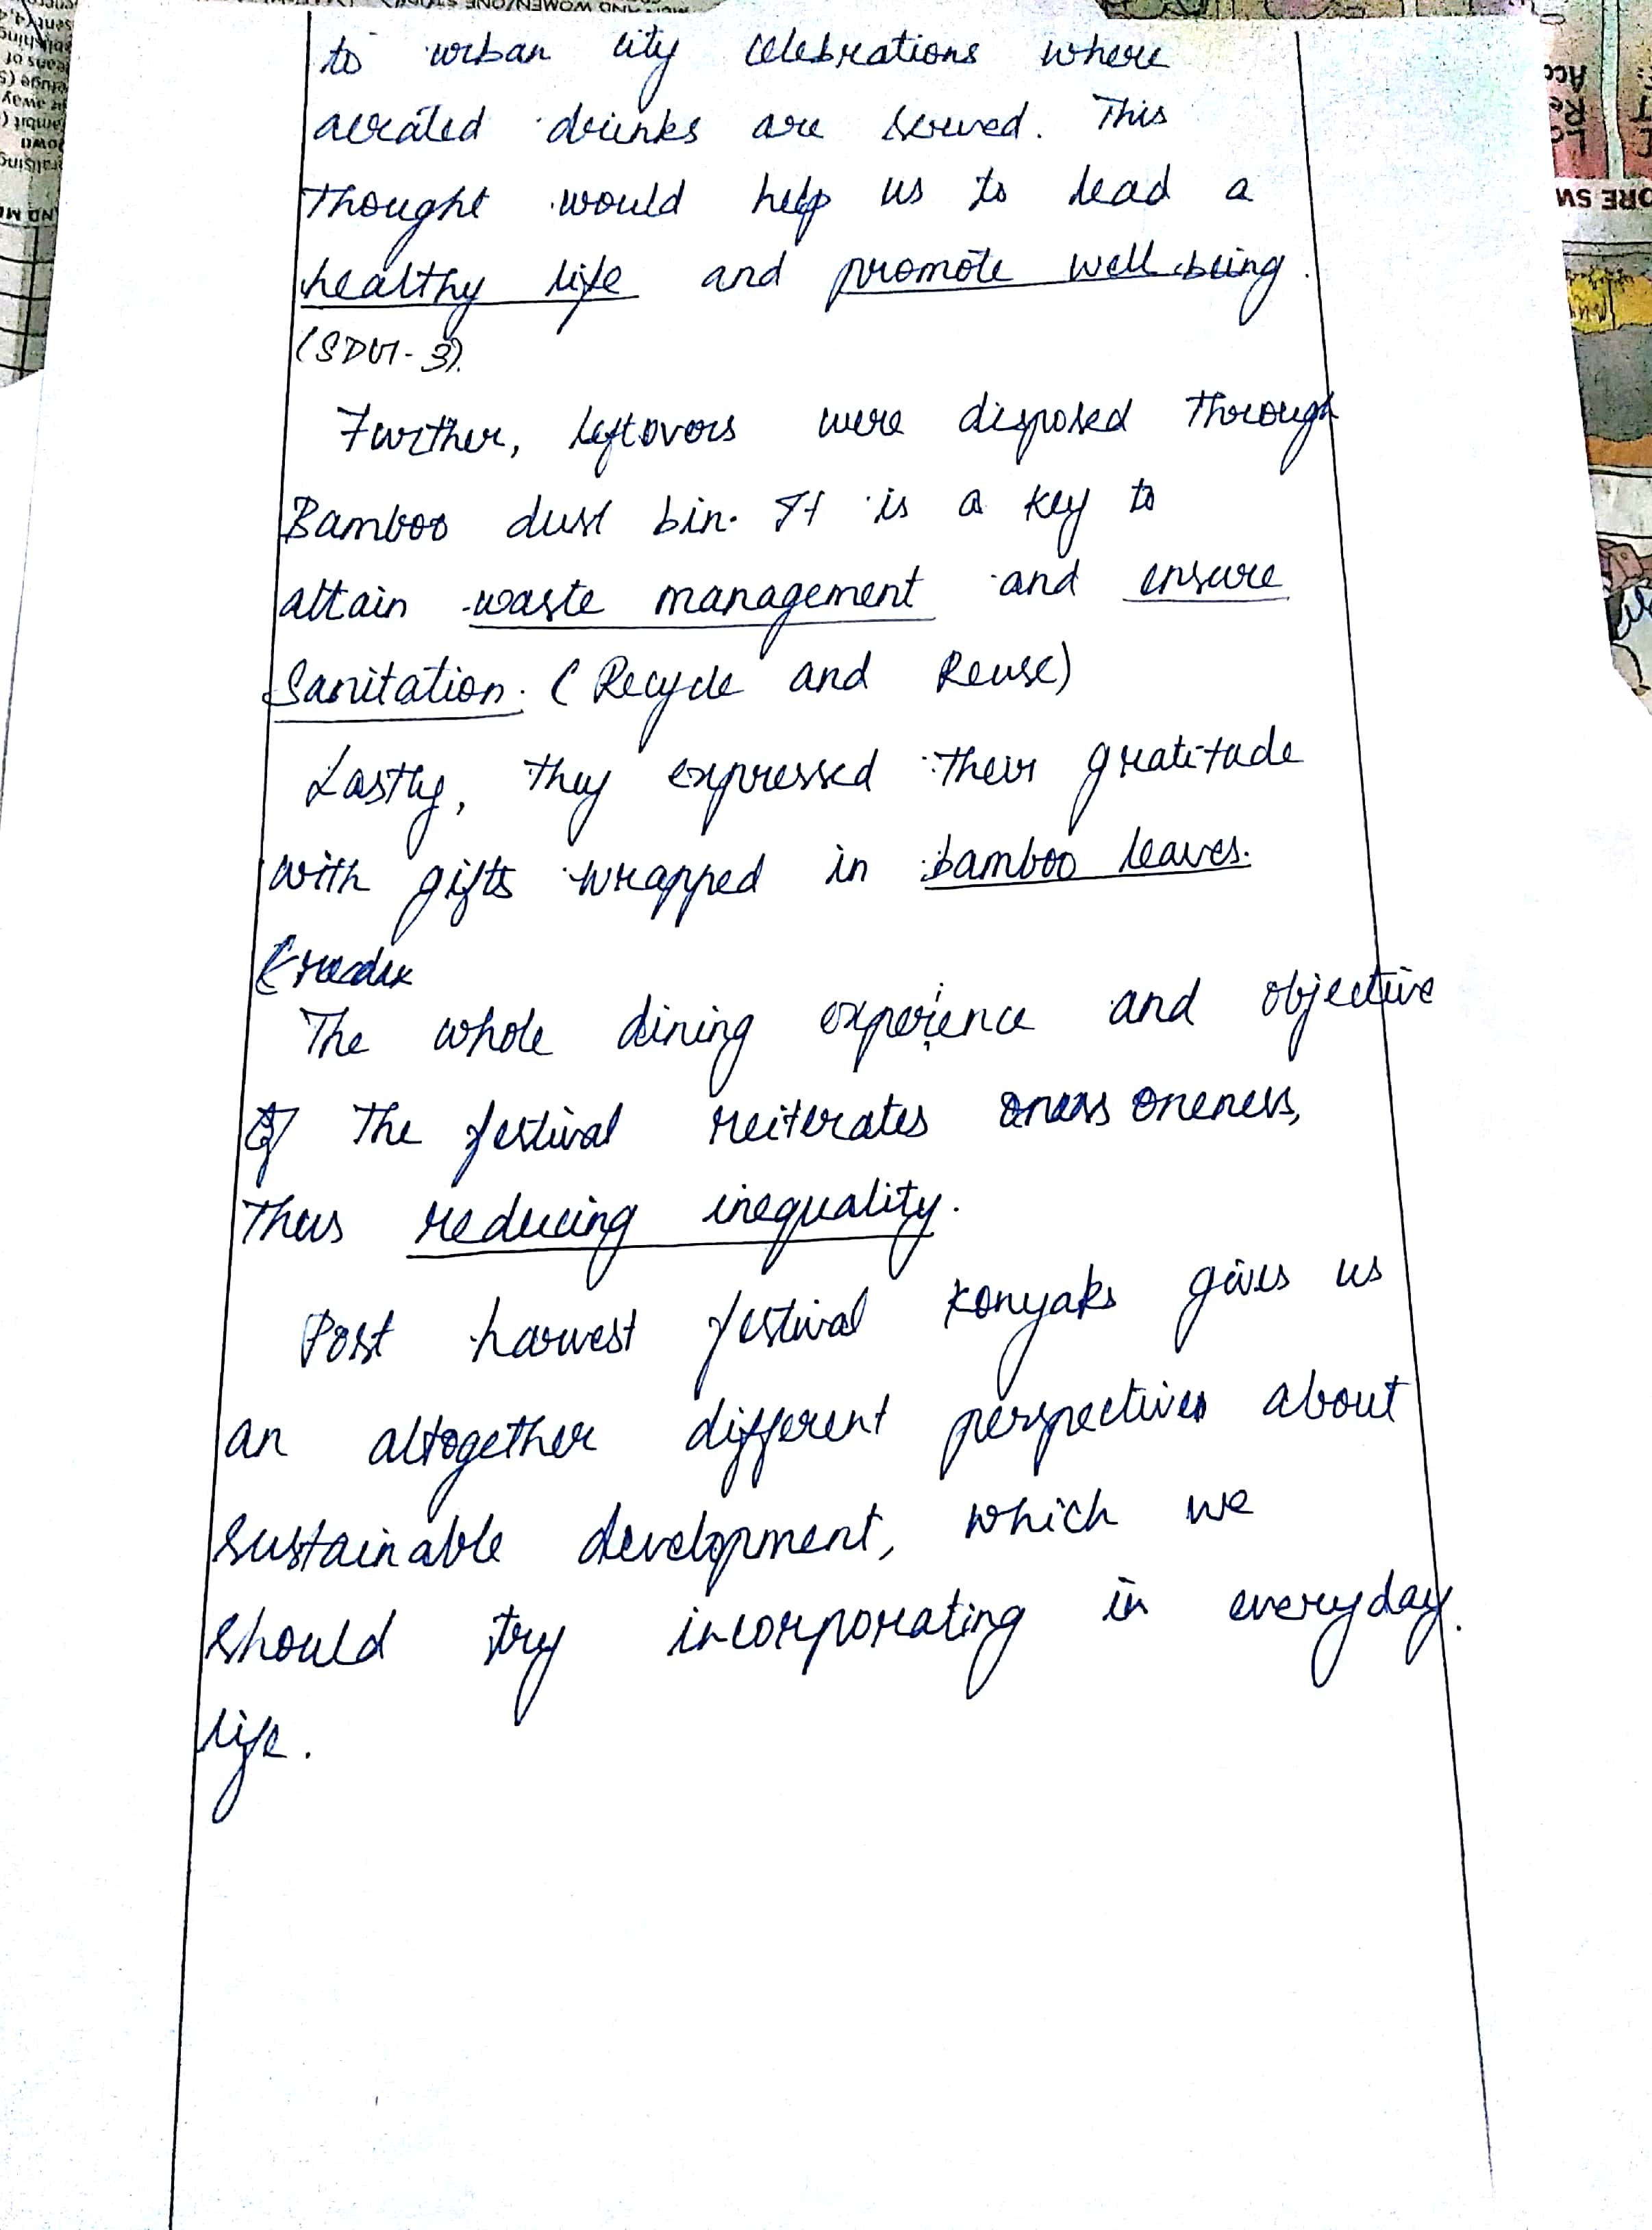 to urban city celebrations where
aerated drinks are served. This
thought would help us to lead a
healthy life and promote well being.
(SDG-3).
Further, leftovers were disposed through
Bamboo dust bin. It is a key to
attain waste management and ensure
Sanitation. (Recycle and Reuse)
Lastly, they expressed their gratitude
with gifts wrapped in bamboo leaves.
The whole dining experience and objective
of the festival reiterates oneness,
thus reducing inequality.
Post harvest festival Konyaks gives us
an altogether different perspectives about
sustainable development, which we
should try incorporating in everyday
life.